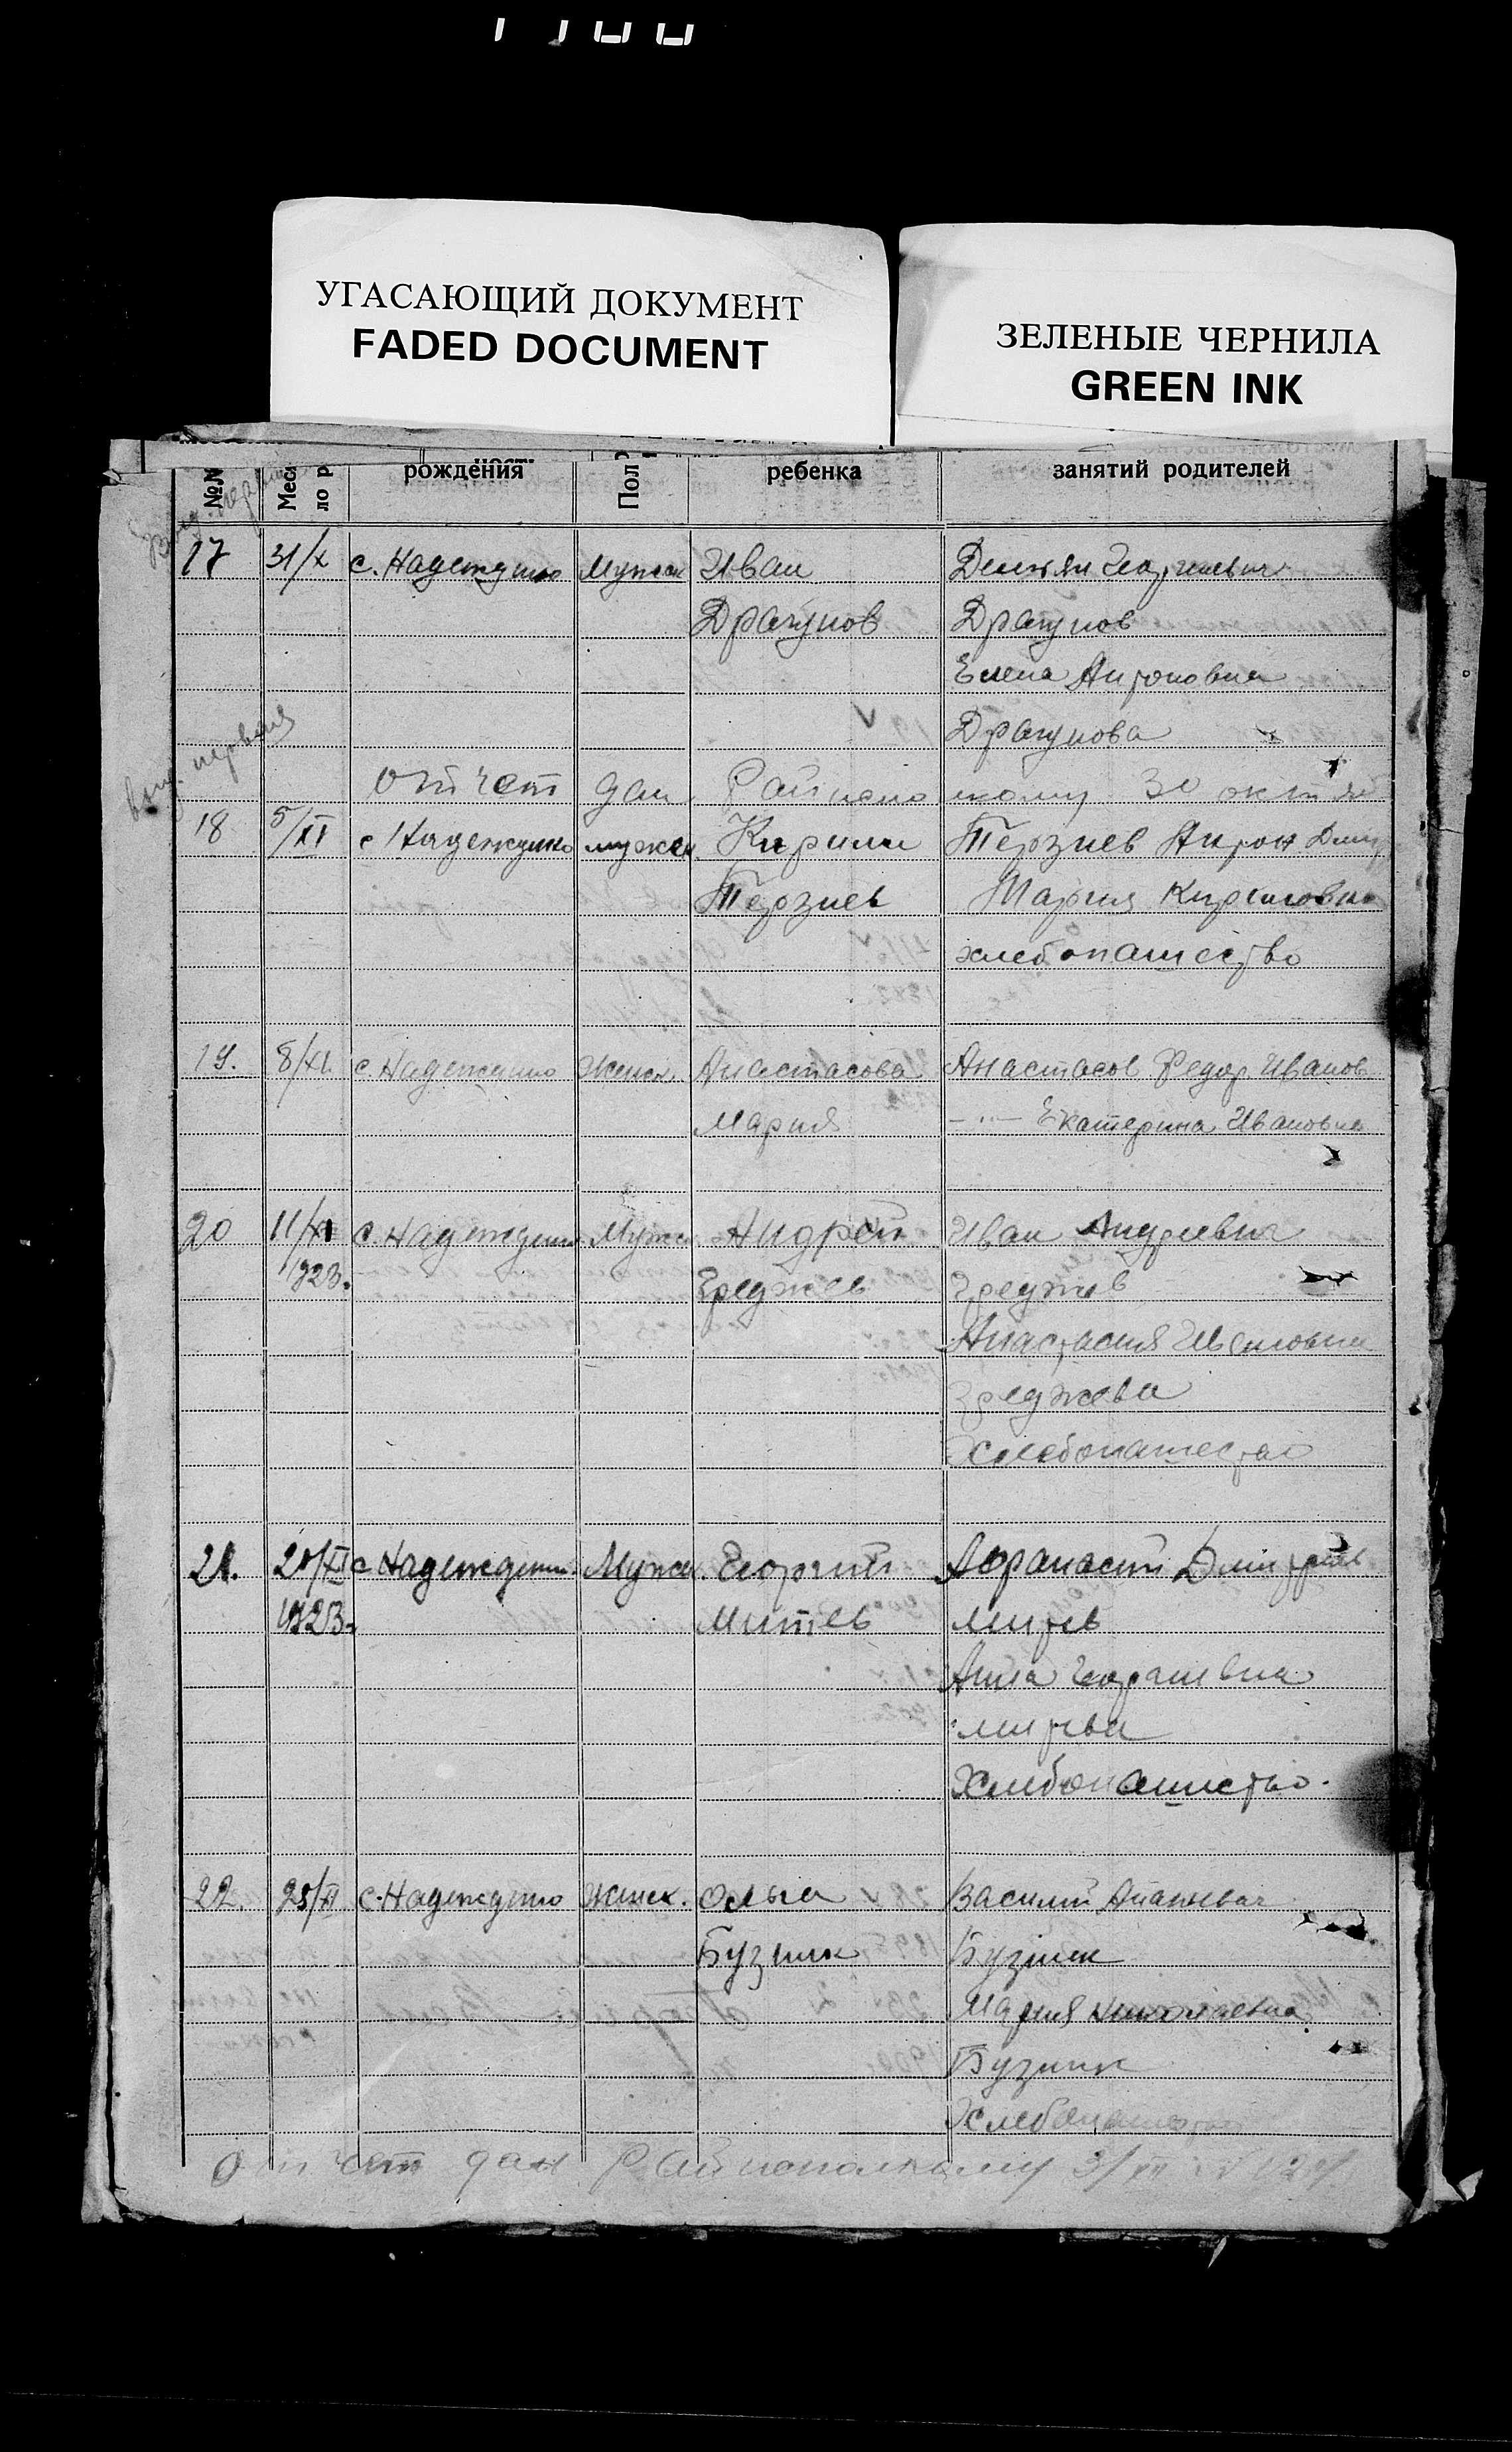 УГАСАЮЩИЙ ДОКУМЕНТ
FADED DOCUMENT
ЗЕЛЕНЫЕ ЧЕРНИЛА
GREEN INK
№№ Меся рождения Пол ребенка занятий родителей
ло р
17 31/X с. Надеждино Мужск Иван Демьян Георгиевич
Драгунов Драгунов
Елена Антоновна
Драгунова
выд. первая
отчет дан Райисполкому 30 октяб
18 5/XI с Надеждино мужск Кирилл Терзиев Антон Дми
Терзиев Мария Кирилловна
хлебопашество
19. 8/XI. с. Надеждино Женск. Анастасова Анастасов Федор Иванов
Мария — " — Екатерина Ивановна
20 11/XI с. Надеждино Мужск Андрей Иван Андреевич
1923. Ереджев Ереджев
Анастасия Ивановна
Ереджева
Хлебопашество
21. 20/XI с. Надеждин. Мужск. Георгий Афанасий Дмитриев
1923. Митев Митев
Анна Георгиевна
Митева
Хлебопашество.
22. 25/XI с. Надеждино Женск. Ольга Василий
Бузник Бузник
Мария Николаевна
Бузник
Хлебопашество
Отчет дан Райисполкому 3/XII